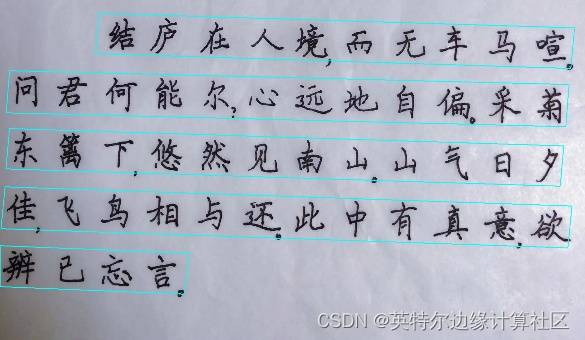 结庐在人境,而无车马喧。
问君何能尔,心远地自偏。采菊
东篱下,悠然见南山。山气日夕
佳,飞鸟相与还。此中有真意,欲
辨已忘言。
CSDN @英特尔边缘计算社区